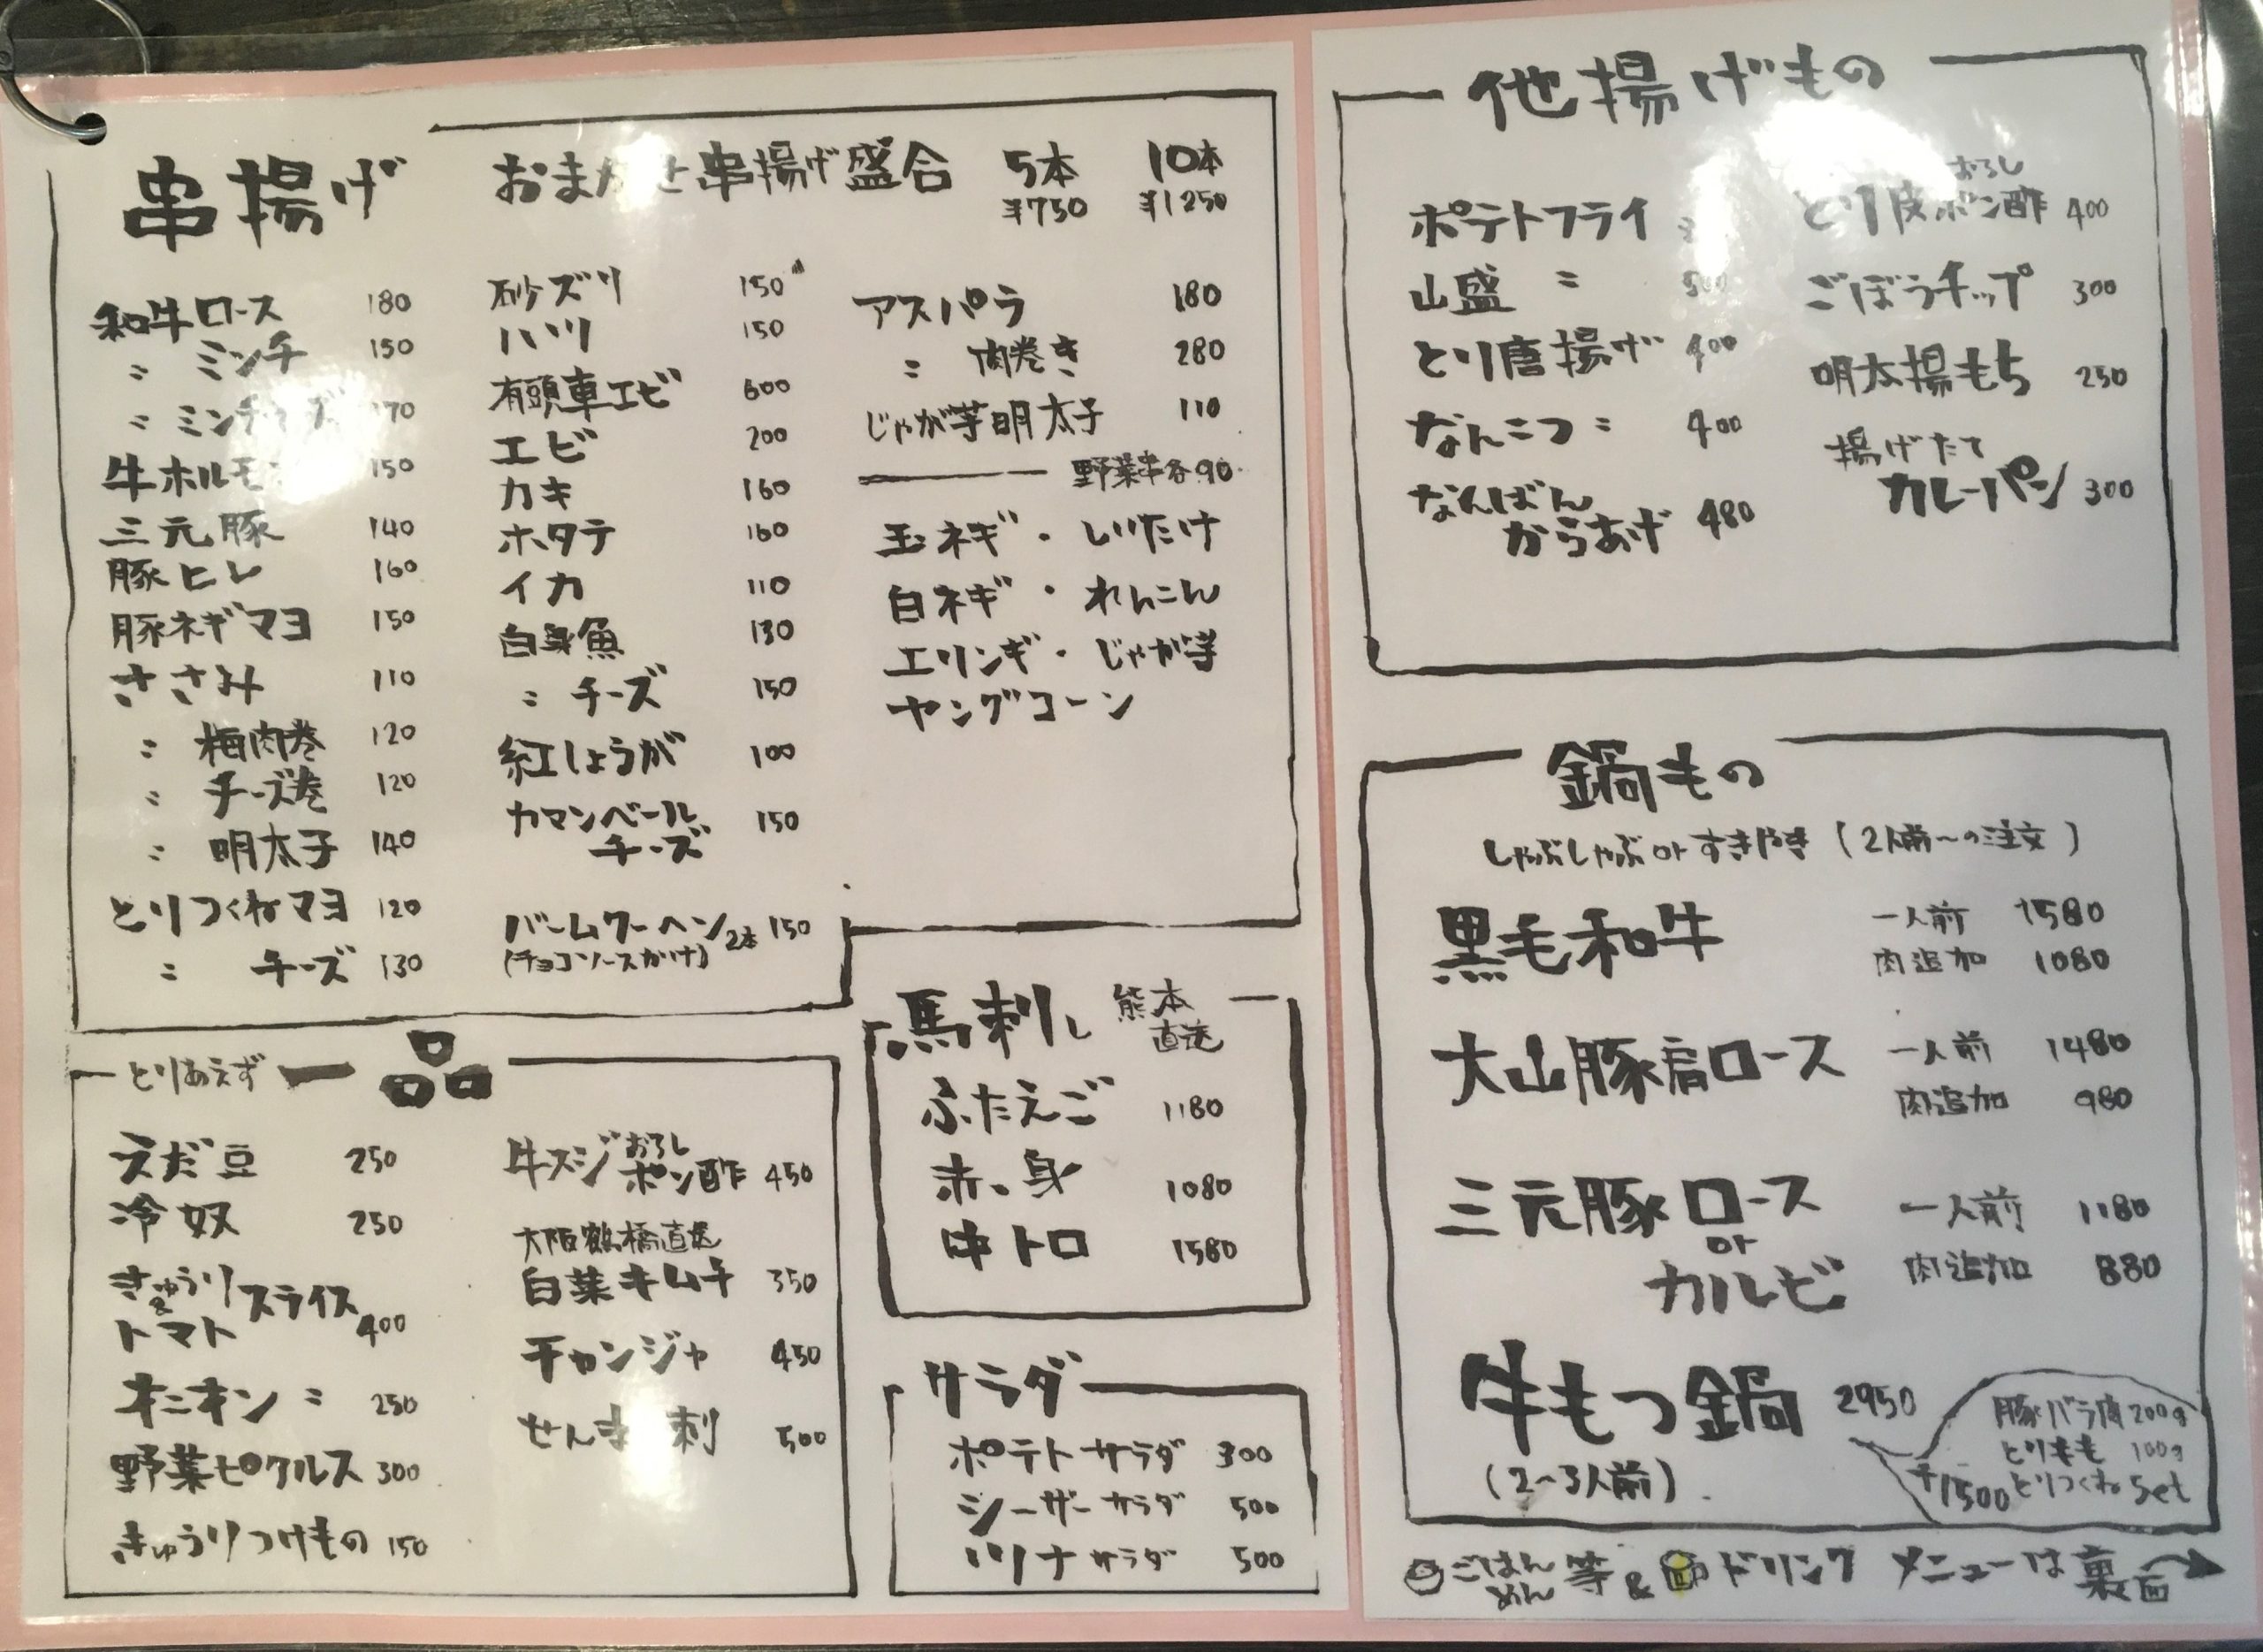 串揚げ
おまかせ串揚げ盛合 5本 10本
¥750 ¥1250
和牛ロース 180
〃 ミンチ 150
〃 ミンチチーズ 170
牛ホルモン 150
三元豚 140
豚ヒレ 160
豚ネギマヨ 150
ささみ 110
〃 梅肉巻 120
〃 チーズ巻 120
〃 明太子 140
とりつくねマヨ 120
〃 チーズ 130
砂ズリ 150
ハツ 150
有頭車エビ 600
エビ 200
カキ 160
ホタテ 160
イカ 110
白身魚 130
〃 チーズ 150
紅しょうが 100
カマンベール
チーズ 150
バームクーヘン 2本 150
(チョコソースがけ)
アスパラ 180
〃 肉巻き 280
じゃが芋明太子 110
野菜串各90
玉ネギ・しいたけ
白ネギ・れんこん
エリンギ・じゃが芋
ヤングコーン
とりあえず一品
えだ豆 250
冷奴 250
きゅうり
&
トマト
スライス 400
オニオン 〃 250
野菜ピクルス 300
きゅうりつけもの 150
牛スジおろしポン酢 450
大阪鶴橋直送
白菜キムチ 350
チャンジャ 450
せんまい刺 500
馬刺し 熊本直送
ふたえご 1180
赤身 1080
中トロ 1580
サラダ
ポテトサラダ 300
シーザーサラダ 500
ツナサラダ 500
他揚げもの
ポテトフライ
山盛 〃 500
とり唐揚げ 400
なんこつ 〃 400
なんばん
からあげ 480
おろし
とり皮ポン酢 400
ごぼうチップ 300
明太揚もち 250
揚げたて
カレーパン 300
鍋もの
しゃぶしゃぶorすきやき (2人前〜の注文)
黒毛和牛 一人前 1580
肉追加 1080
大山豚肩ロース 一人前 1480
肉追加 980
三元豚ロース 一人前 1180
or
カルビ 肉追加 880
牛もつ鍋 2950
(2〜3人前)
豚バラ肉200g
とりもも 100g
+1500 とりつくねset
ごはん
めん 等 & ドリンク メニューは裏面